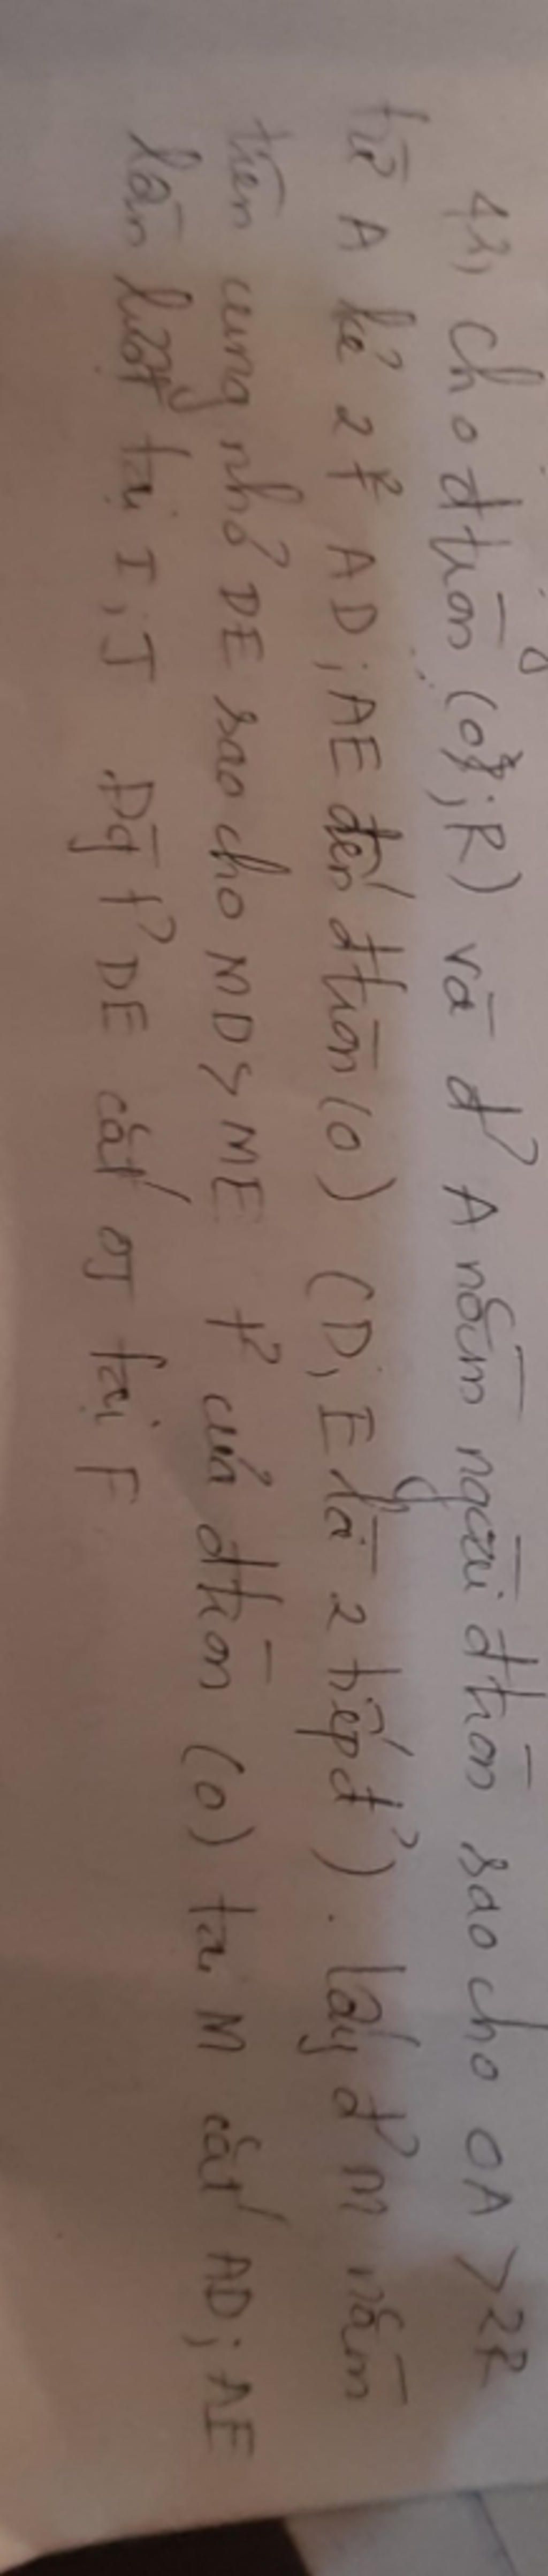 41, cho đtròn (O;R) và đ' A nằm ngoài đtròn sao cho OA > 2R
từ A kẻ 2 t² AD; AE đến đtròn (O) (D, E là 2 tiếp đ'). Lấy đ' M nằm
trên cung nhỏ DE sao cho MD > ME t² của đtròn (O) tại M cắt AD; AE
lần lượt tại I, J Đg t² DE cắt OJ tại F